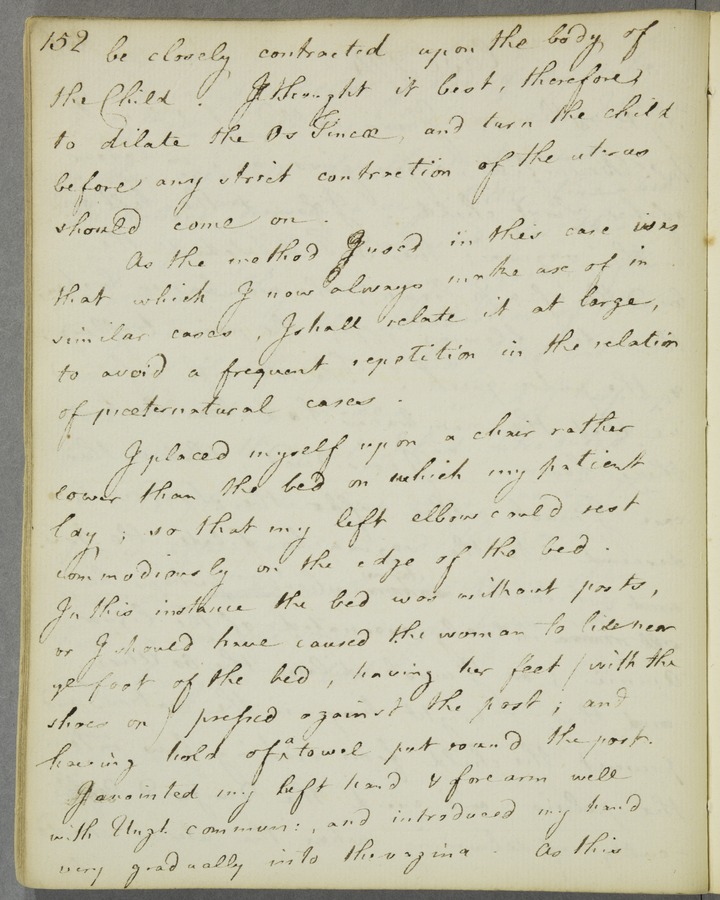 152
be closely contracted upon the body of
the Child. I thought it best, therefore,
to dilate the Os Tincæ, and turn the child
before any strict contraction of the uterus
should come on.
As the method I used in this case was
that which I now always make use of in
similar cases, I shall relate it at large,
to avoid a frequent repetition in the relation
of præternatural cases.
I placed myself upon a chair rather
lower than the bed on which my patient
lay; so that my left elbow could rest
commodiously on the edge of the bed.
In this instance the bed was without posts,
or I should have caused the woman to lie near
ye foot of the bed, having her feet (with the
shoes on) pressed against the post; and
having hold of a towel put round the post.
I anointed my left hand & forearm well
with Ungt. commun:, and introduced my hand
very gradually into the vagina. As this